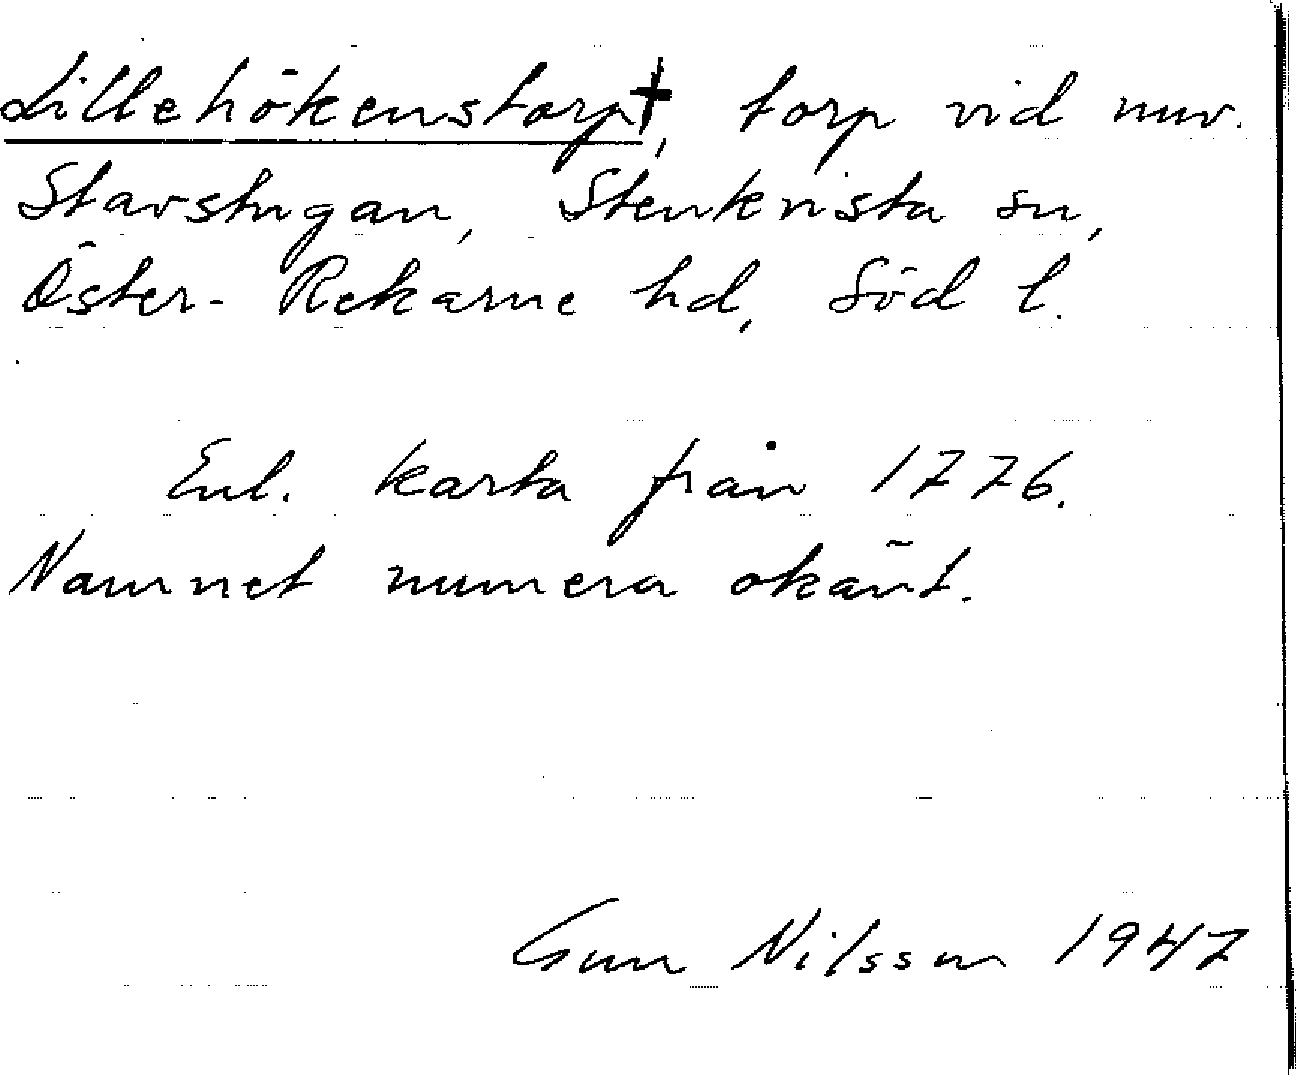 Lillehökenstorp†, torp vid nuv.
Stavstugan, Stenkvista sn,
Öster-Rekarne hd, Söd l.
Enl. karta från 1776.
Namnet numera okänt.
Gun Nilsson 1947